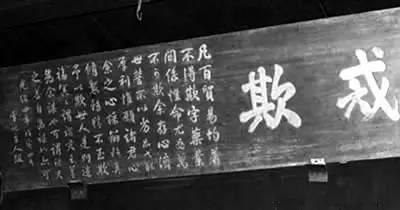 戒欺
凡百貿易均着
不得欺字藥業
關係性命尤為萬
不可欺余存心濟
世誓不以劣品弋取
厚利惟願諸君心
余之心採辦務真
修製務精不至欺
予以欺世人是則造
福冥冥謂諸君之善
為余謀也可謂諸君
之善自為謀也亦可